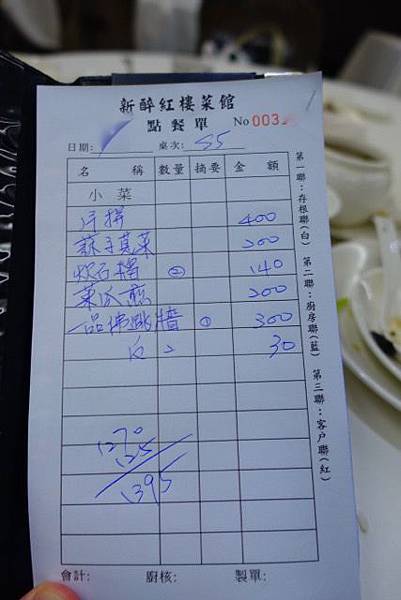 新醉紅樓菜館
點餐單 No 003
日期: 桌次: S5
名稱 數量 摘要 金額
小菜
拼 400
菜 200
② 140
菜瓜煎 200
一品佛跳牆 ① 300
白 2 30
1270
125
1395
會計: 廚核: 製單:
第一聯:存根聯(白) 第二聯:廚房聯(藍) 第三聯:客戶聯(紅)